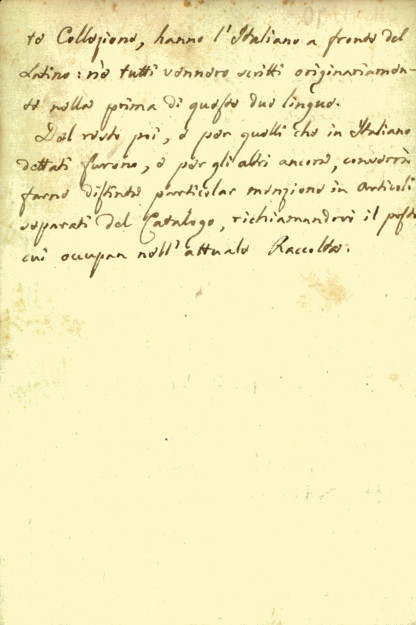 te Collezione, hanno l'Italiano a fronte del
Latino: nè tutti vennero scritti originariamen-
te nella prima di queste due lingue.
Del resto poi, e per quelli che in Italiano
dettati furono, e per gli altri ancora, converrà
farne distinta particolar menzione in articoli
separati del Catalogo, richiamandovi il posto
cui occupan nell'attuale Raccolta.